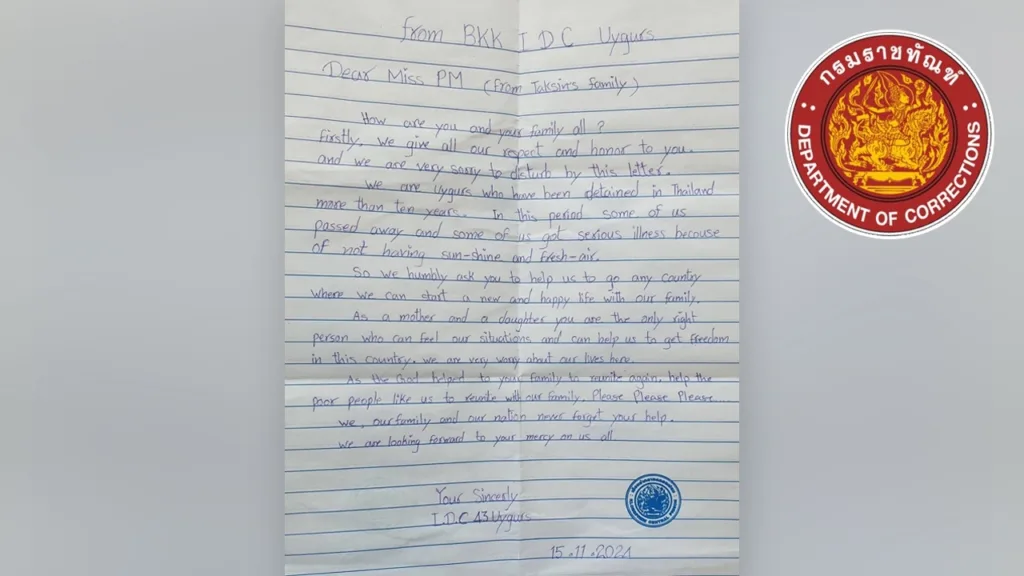 from BKK I D C Uygurs
Dear Miss PM (from Taksin's family)
How are you and your family all ?
Firstly, we give all our respect and honor to you.
and we are very sorry to disturb by this letter.
We are Uygurs who have been detained in Thailand
more than ten years. In this period some of us
passed away and some of us got serious illness because
of not having sun-shine and fresh-air.
So we humbly ask you to help us to go any country
where we can start a new and happy life with our family.
As a mother and a daughter you are the only right
person who can feel our situations and can help us to get freedom
in this country. we are very worry about our lives here.
As the God helped to your family to reunite again, help the
poor people like us to reunite with our family. Please Please Please....
we, our family and our nation never forget your help.
we are looking forward to your mercy on us all
Your Sincerly
I.D.C 43 Uygurs
15.11.2024
กรมราชทัณฑ์
DEPARTMENT OF CORRECTIONS